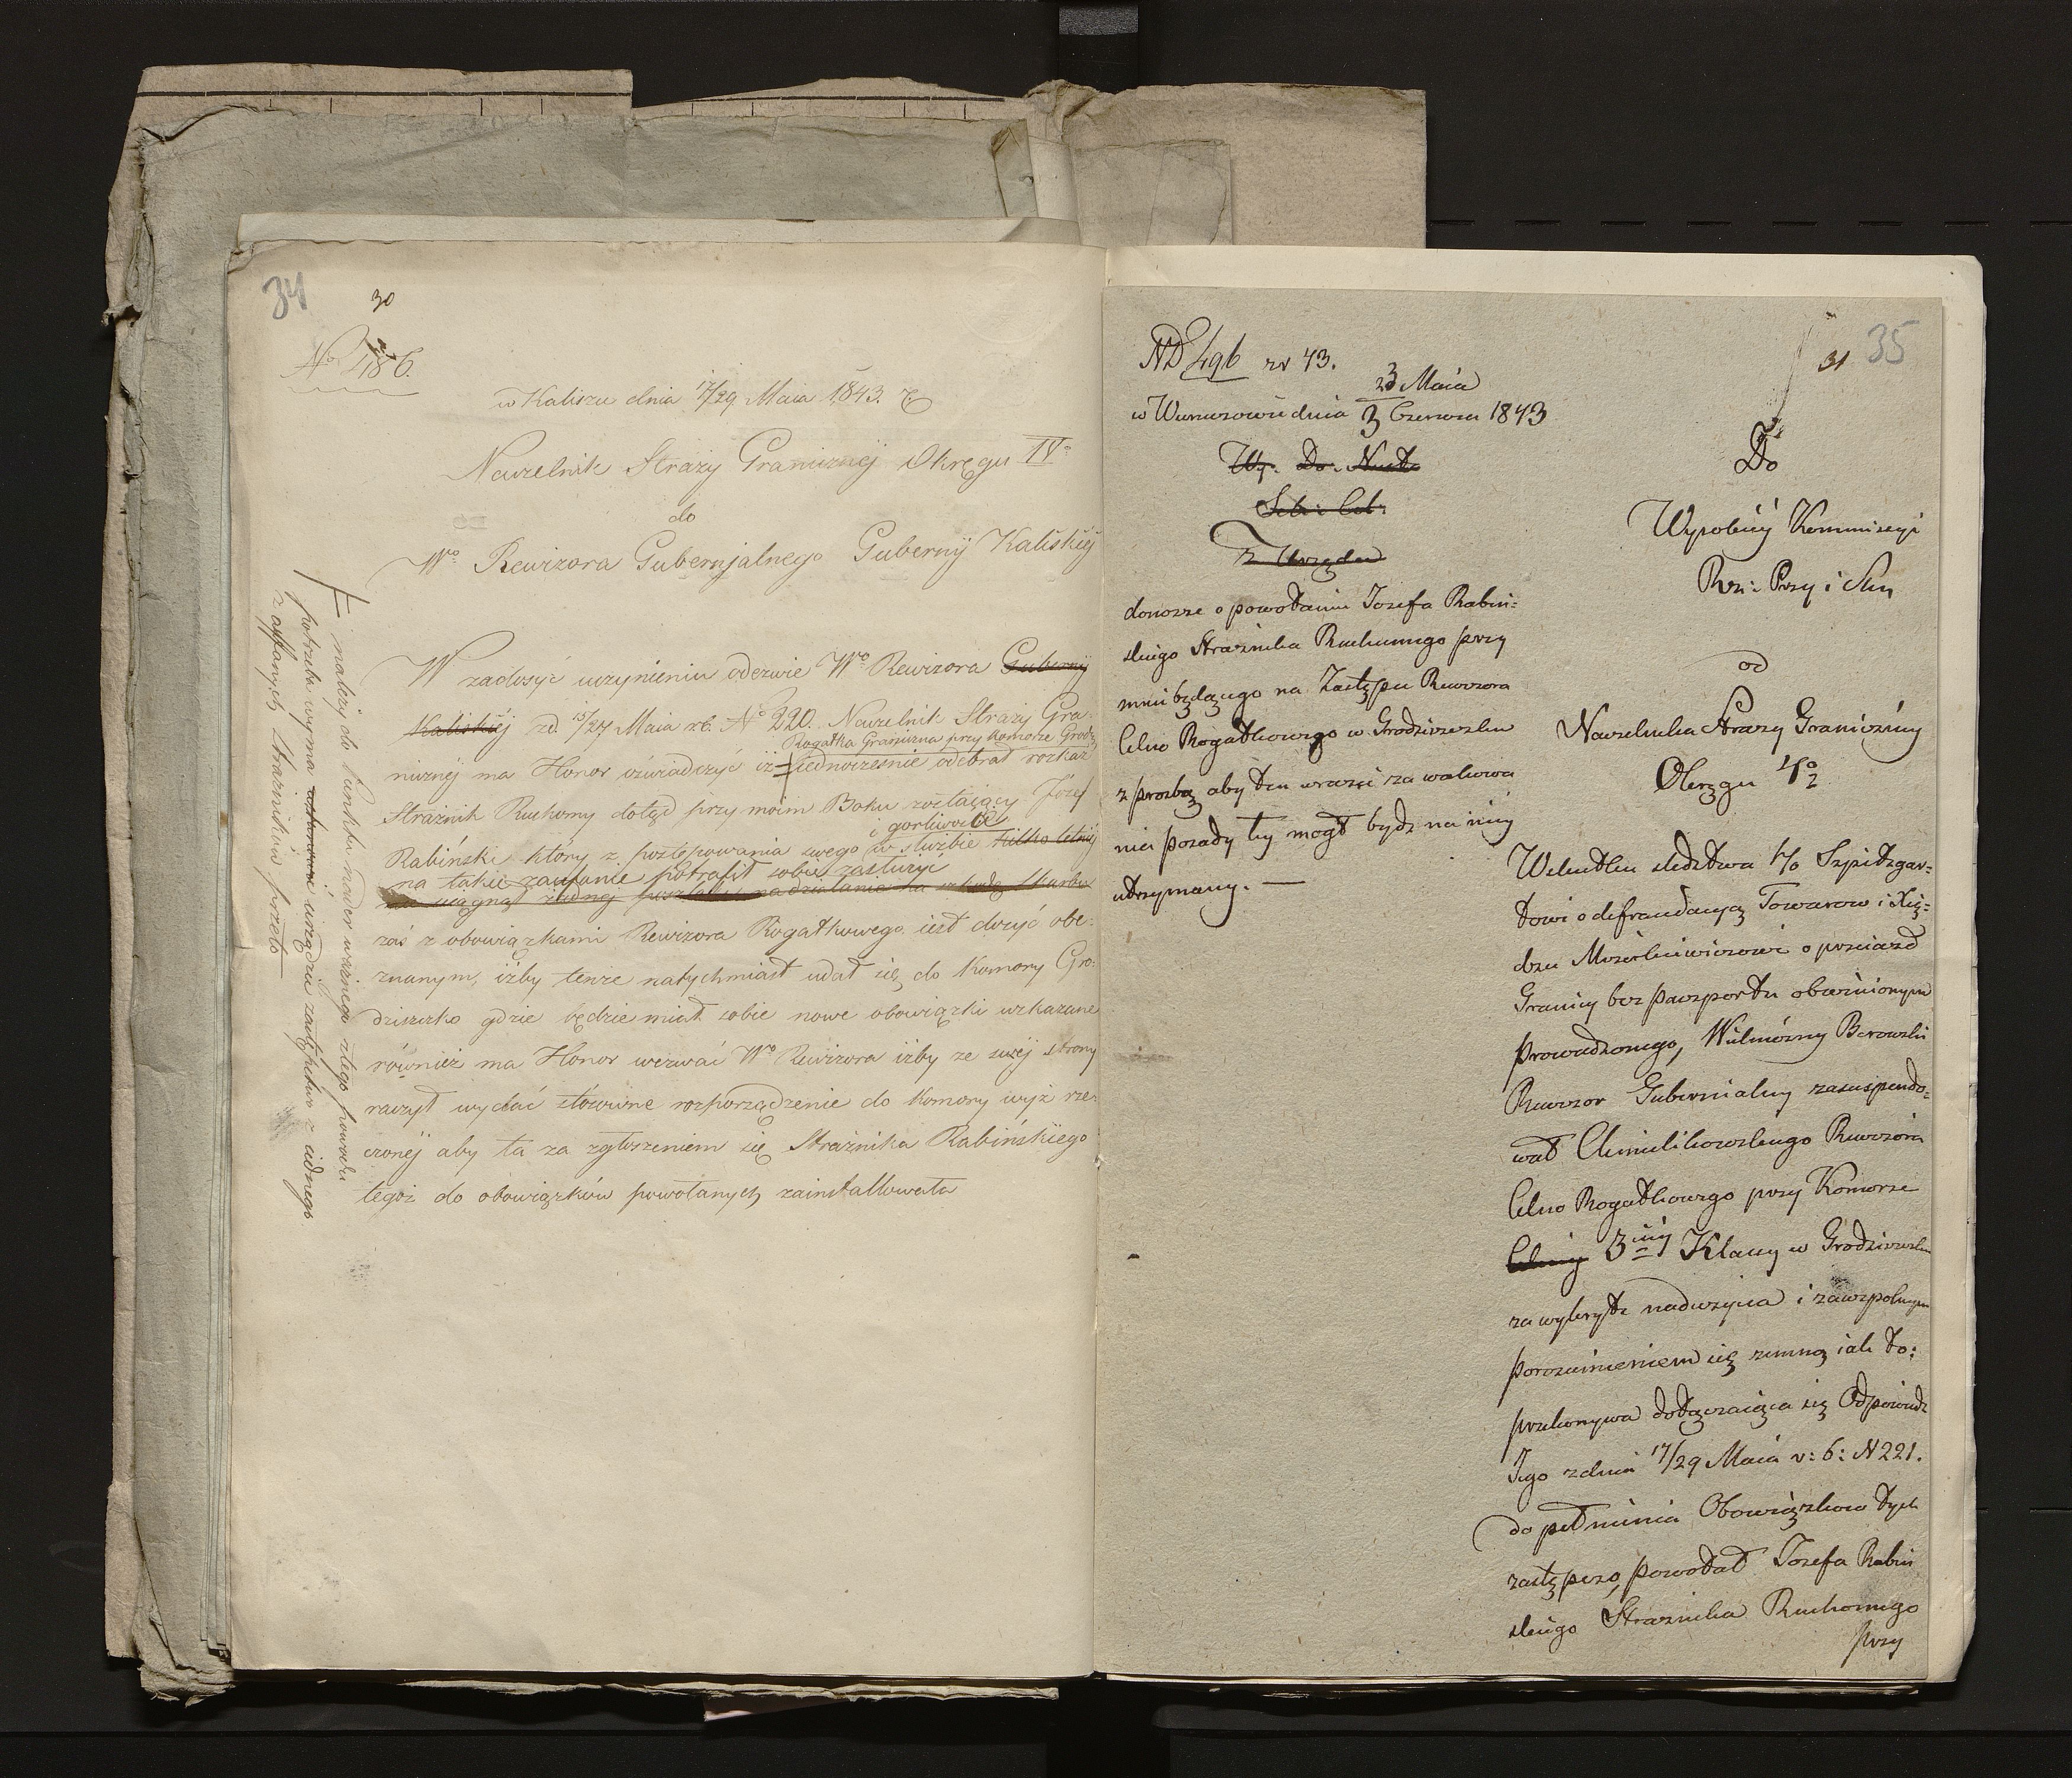 34
30
No 486.
w Kaliszu dnia 17/29 Maia 1843. r.
Naczelnik Straży Granicznéj Okręgu IVo
do
Wo. Rewizora Gubernjalnego Gubernij Kaliskiéj
W zadosyć uczynieniu odezwie Wo Rewizora Gubernij
Kaliskiéj zd. 15/27 Maia r.b. No 220. Naczelnik Straży Gra-
Rogatka Graniczna przy Komorze Grodz
nicznéj ma Honor oświadczyć iż jednocześnie odebrał rozkaz
Strażnik Ruchomy dotąd przy moim Boku zostaiący Józef
i gorliwości
Rabiński który z postępowania swego w służbie kilko letniéj
na takie zaufanie potrafił sobie zasłużyć
zaś z obowiązkami Rewizora Rogatkowego iest dosyć obe-
znanym, iżby tenże natychmiast udał się do Komory Gro-
dziszczko gdzie będzie miał sobie nowe obowiązki wskazane
również ma Honor wezwać Wo Rewizora iżby ze swéj strony
raczył wydać stosowne rozporządzenie do Komory wyż rze-
czonéj aby ta za zgłoszeniem się Strażnika Rabińskiego
tegoż do obowiązków powołanych zainstallowała
należy do punktu nader ważnego z tego powodu
potrzeba wyma urzędzie zastępstwo z iednego
z zaffanych Strażników przeto
35
31
ND 496 rv 43.
23 Maia
w Wieruszowie dnia 3 Czerwca 1843
Wy. Do. Nacz
z Urzędu
donosze o powołaniu Jozefa Rabin=
skiego Straznika Ruchomego przy
mnie będącego na Zastępcę Rewizora
Celno Rogatkowego w Grodziszczku
z prozbą aby ten wrazie za wakowa
nia posady tey mogł bydz na niey
utrzymany. —
Do
Wysokiey Kommissyi
Rz: Przy i Skar
od
Naczelnika Strazy Graniczney
Okręgu 4o
Wskutku sledztwa c/o Szpitzgar=
towi o defraudacyą Towarow i Xię=
dzu Mozolniewiczowi o przeiazd
Granicy bez paszportu obwinionym
prowadzonego, Wielmożny Borowski
Rewizor Gubernialny zasuspendo=
wał Chmielikowskiego Rewizora
Celno Rogatkowego przy Komorze
Celney 3iey Klassy w Grodziszczku
za wykryte naduzycia i zawspolnym
porozumieniem się zemną iak to:
przekonywa dołączaiąca się Odpowiedz
Jego zdnia 17/29 Maia r: b: N 221.
do pełnienia Obowiązkow tych
zastępczo, powołał Jozefa Rabin
skiego Straznika Ruchomego
przy